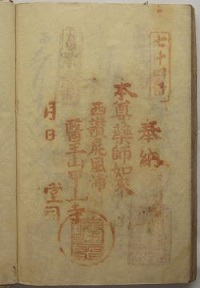 七十四番
奉納
本尊薬師如来
西讃屏風浦
醫王山甲山寺
月日
堂司